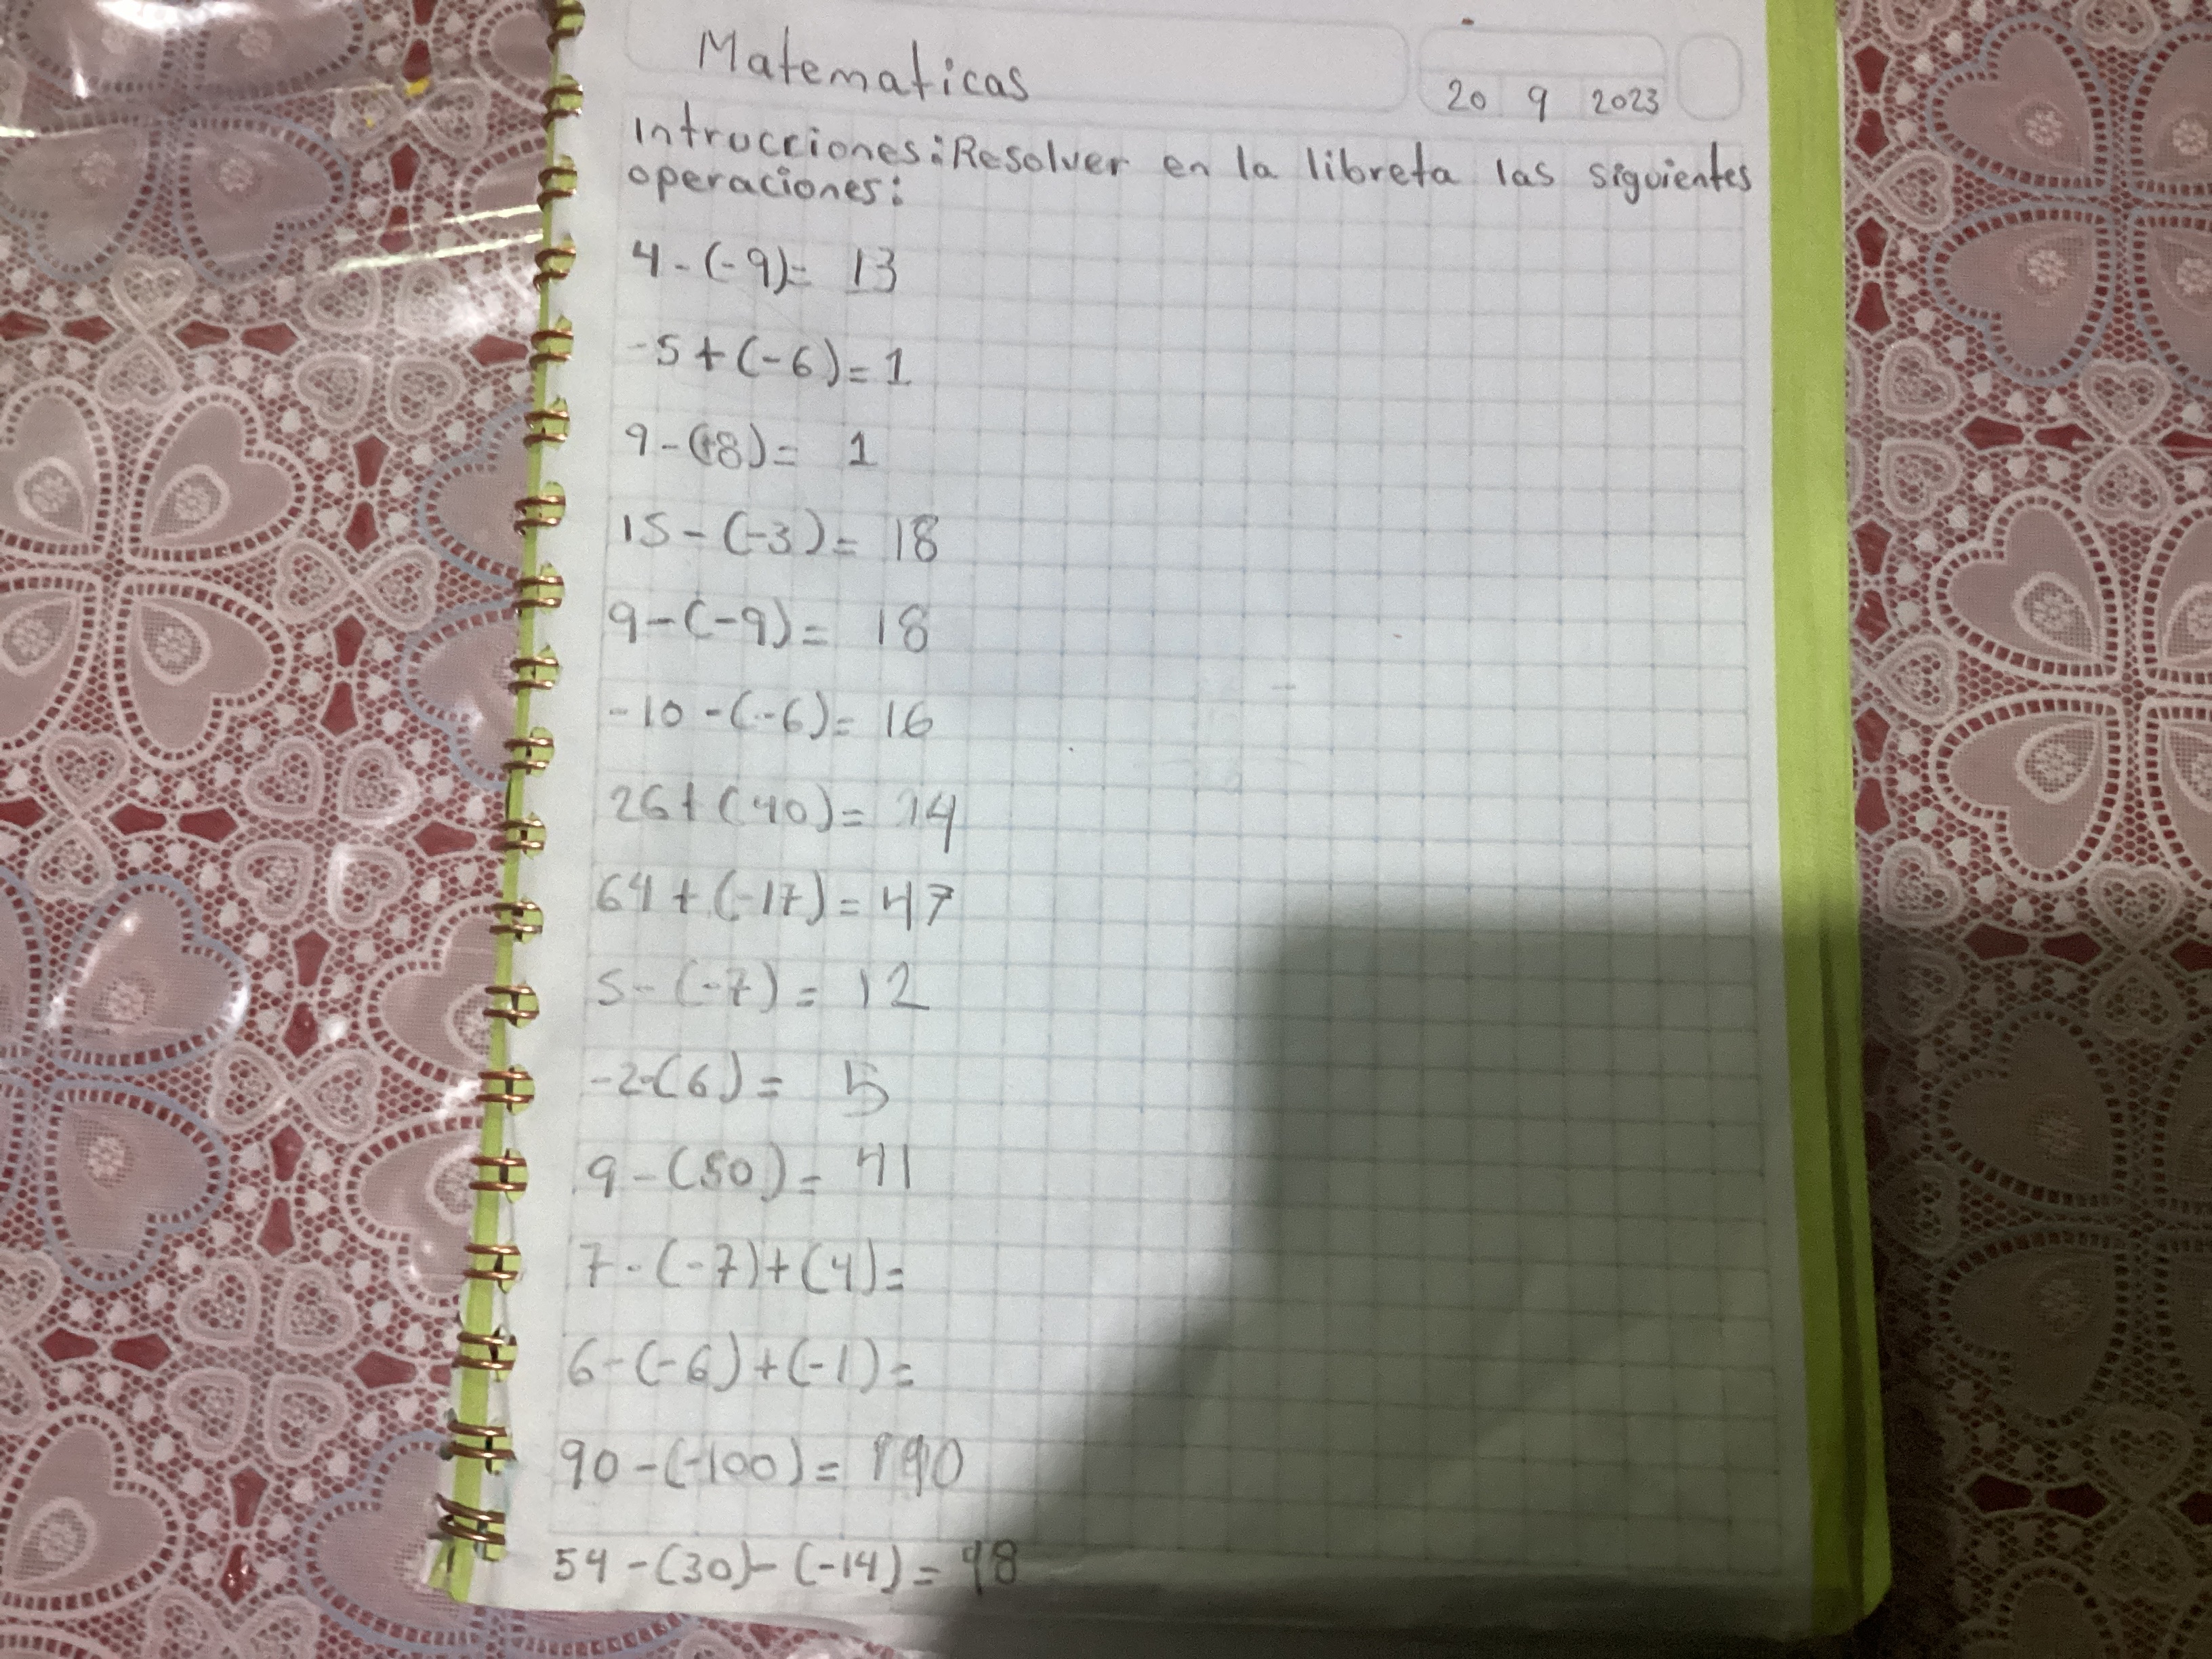 Matematicas
20 9 2023
Intrucciones: Resolver en la libreta las siguientes
operaciones:
4-(-9)= 13
-5+(-6)=1
9-(+8)= 1
15-(-3)= 18
9-(-9)= 18
-10-(-6)= 16
26+(40)= 14
64+(-17)=47
5-(-7)= 12
-2-(6)= 5
9-(50)= 41
7-(-7)+(4)=
6-(-6)+(-1)=
90-(-100)= 190
54-(30)-(-14)= 98